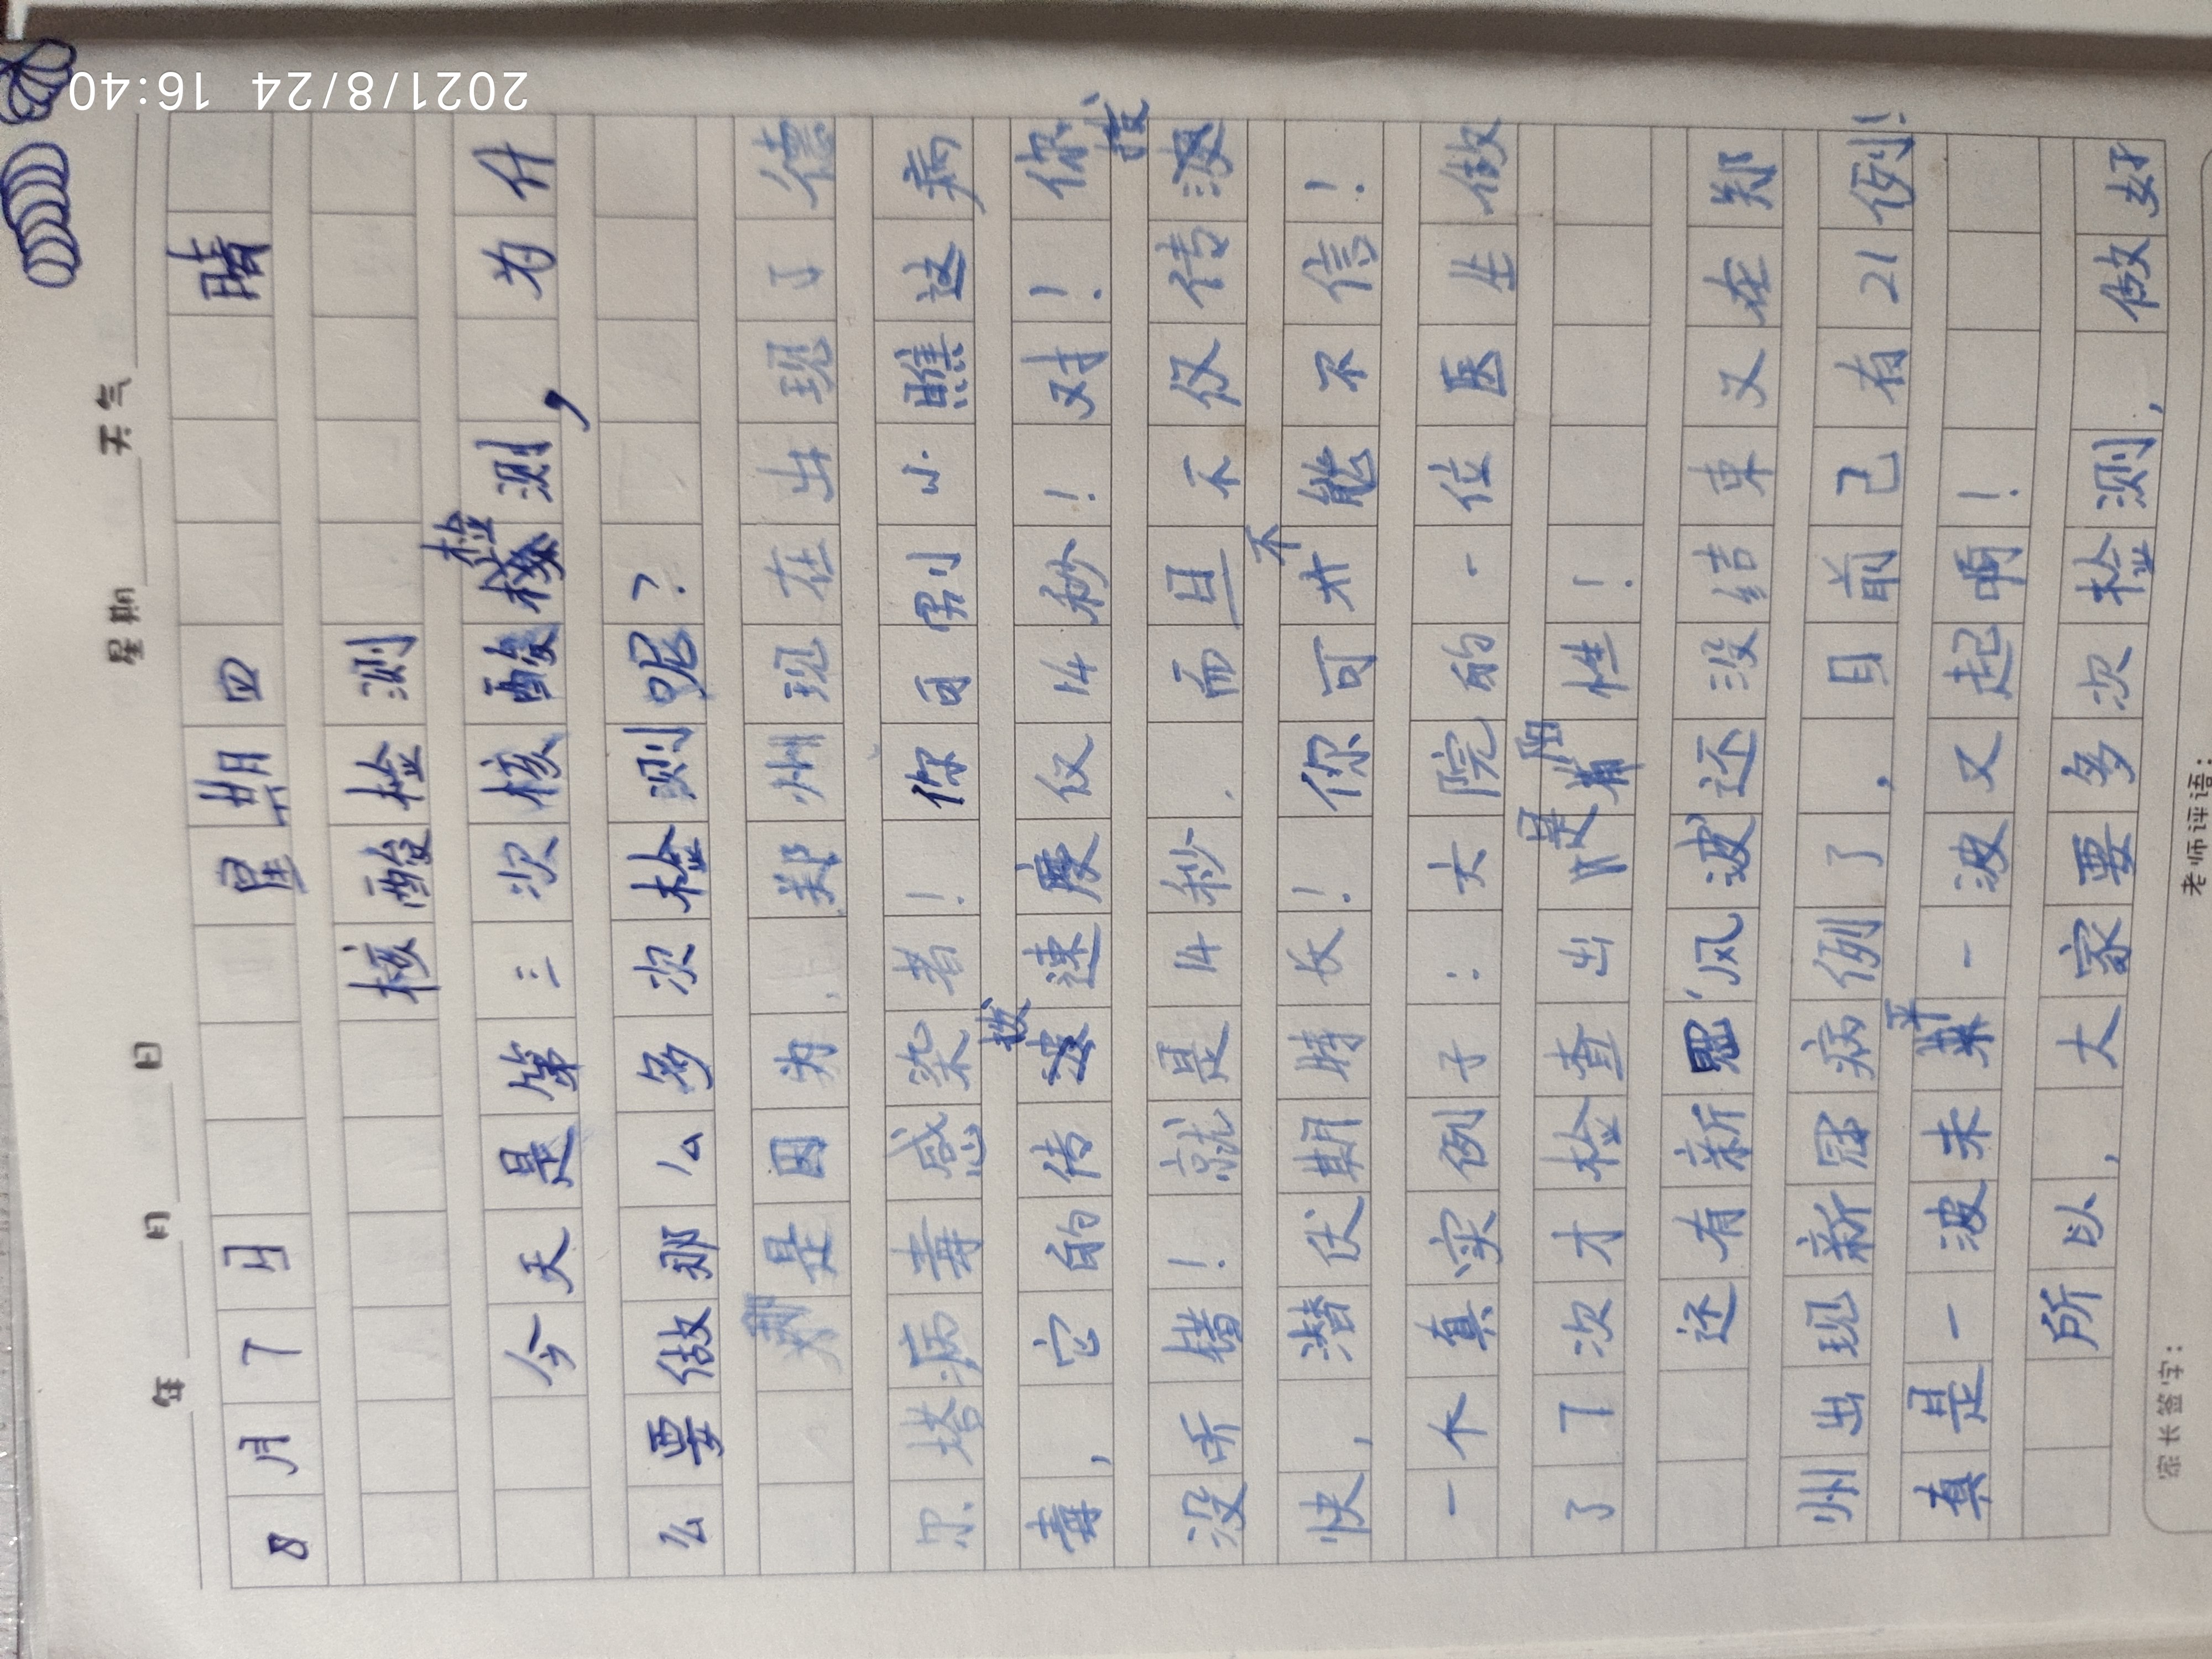 2021/8/24 16:40
年 月 日 星期 天气
8月7日 星期四 晴
核酸检测
今天是第三次核酸检测,为什
么要做那么多次检测呢?
是因为,郑州现在出现了德
尔塔病毒感染者!你可别小瞧这病
毒,它的传拨速度仅14秒!对!你
没听错!就是14秒.而且不仅传拨
快,潜伏期特长!你可不能不信!
一个真实例子:大院的一位医生做
了7次才检查出是阳性!
还有新冠风波还没结束又在郑
州出现新冠病例了,目前己有21例!
真是一波未平一波又起啊!
所以,大家要多次检测,做好
家长签字: 老师评语: